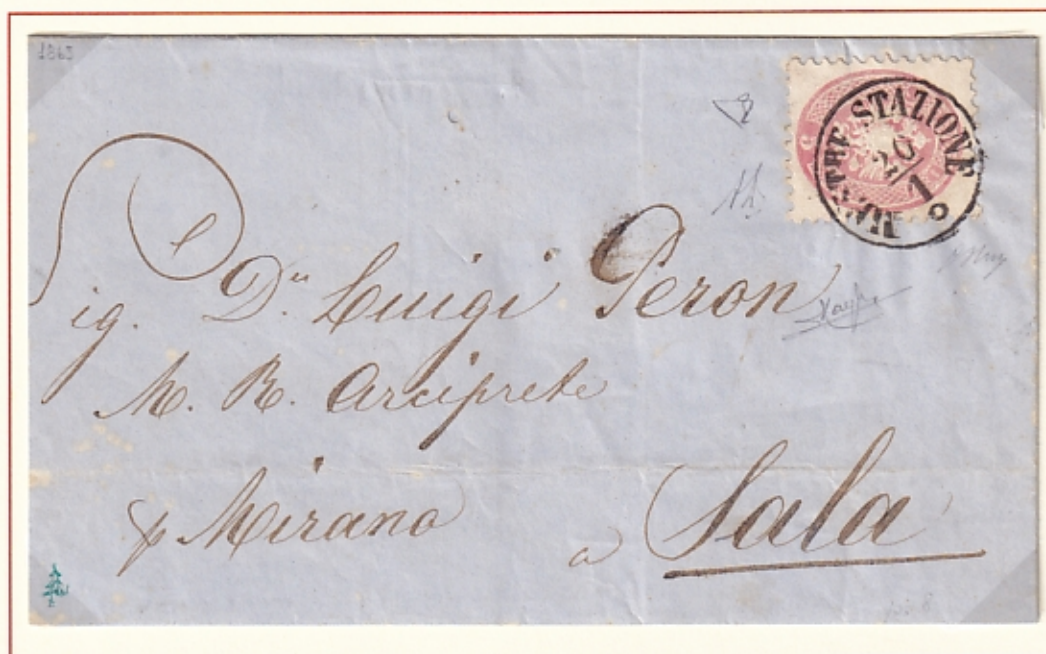 1863
MESTRE STAZIONE
20/1
ig. Dn Luigi Peron
M. R. Arciprete
p Mirano
a Sala